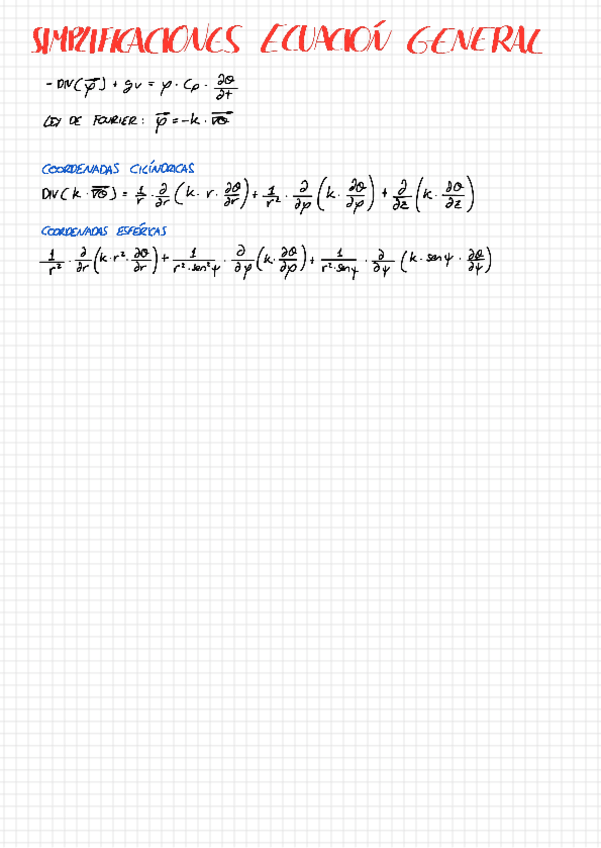 SIMPLIFICACIONES ECUACIÓN GENERAL
- DIV(φ⃗) + gv = ρ · Cp · ∂θ/∂t
LEY DE FOURIER: φ⃗ = -k · ∇θ
COORDENADAS CILÍNDRICAS
DIV(k · ∇θ) = 1/r · ∂/∂r (k · r · ∂θ/∂r) + 1/r² · ∂/∂φ (k · ∂θ/∂φ) + ∂/∂z (k · ∂θ/∂z)
COORDENADAS ESFÉRICAS
1/r² · ∂/∂r (k · r² · ∂θ/∂r) + 1/(r² · sen²ψ) · ∂/∂φ (k · ∂θ/∂φ) + 1/(r² · senψ) · ∂/∂ψ (k · senψ · ∂θ/∂ψ)